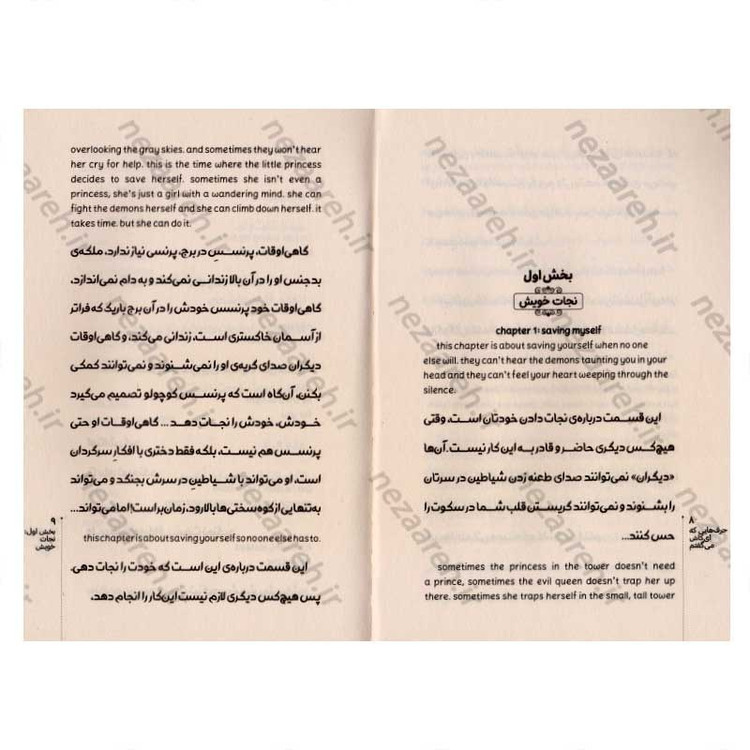 بخش اول
نجات خویش
chapter 1: saving myself
this chapter is about saving yourself when no one
else will. they can't hear the demons taunting you in your
head and they can't feel your heart weeping through the
silence.
این قسمت درباره‌ی نجات دادن خودتان است، وقتی
هیچ‌کس دیگری حاضر و قادر به این کار نیست. آن‌ها
«دیگران» نمی‌توانند صدای طعنه زدن شیاطین در سرتان
را بشنوند و نمی‌توانند گریستن قلب شما در سکوت را
حس کنند...
sometimes the princess in the tower doesn't need
a prince, sometimes the evil queen doesn't trap her up
there. sometimes she traps herself in the small, tall tower
۸
حرف‌هایی که
ای کاش
می‌گفتم
overlooking the gray skies. and sometimes they won't hear
her cry for help. this is the time where the little princess
decides to save herself. sometimes she isn't even a
princess, she's just a girl with a wandering mind. she can
fight the demons herself and she can climb down herself. it
takes time. but she can do it.
گاهی اوقات، پرنسسِ در برج، پرنسی نیاز ندارد، ملکه‌ی
بدجنس او را در آن بالا زندانی نمی‌کند و به دام نمی‌اندازد،
گاهی اوقات خود پرنسس خودش را در آن برج باریک که فراتر
از آسمان خاکستری است، زندانی می‌کند، و گاهی اوقات
دیگران صدای گریه‌ی او را نمی‌شنوند و نمی‌توانند کمکی
بکنن، آن‌گاه است که پرنسس کوچولو تصمیم می‌گیرد
خودش، خودش را نجات دهد... گاهی اوقات او حتی
پرنسس هم نیست، بلکه فقط دختری با افکارِ سرگردان
است، او می‌تواند با شیاطینِ در سرش بجنگد و می‌تواند
به‌تنهایی از کوه سختی‌ها بالا رود، زمان‌بر است! اما می‌تواند...
this chapter is about saving yourself so no one else has to.
این قسمت درباره‌ی این است که خودت را نجات دهی.
پس هیچ‌کس دیگری لازم نیست این‌کار را انجام دهد.
۹
بخش اول:
نجات
خویش
nezaareh.ir